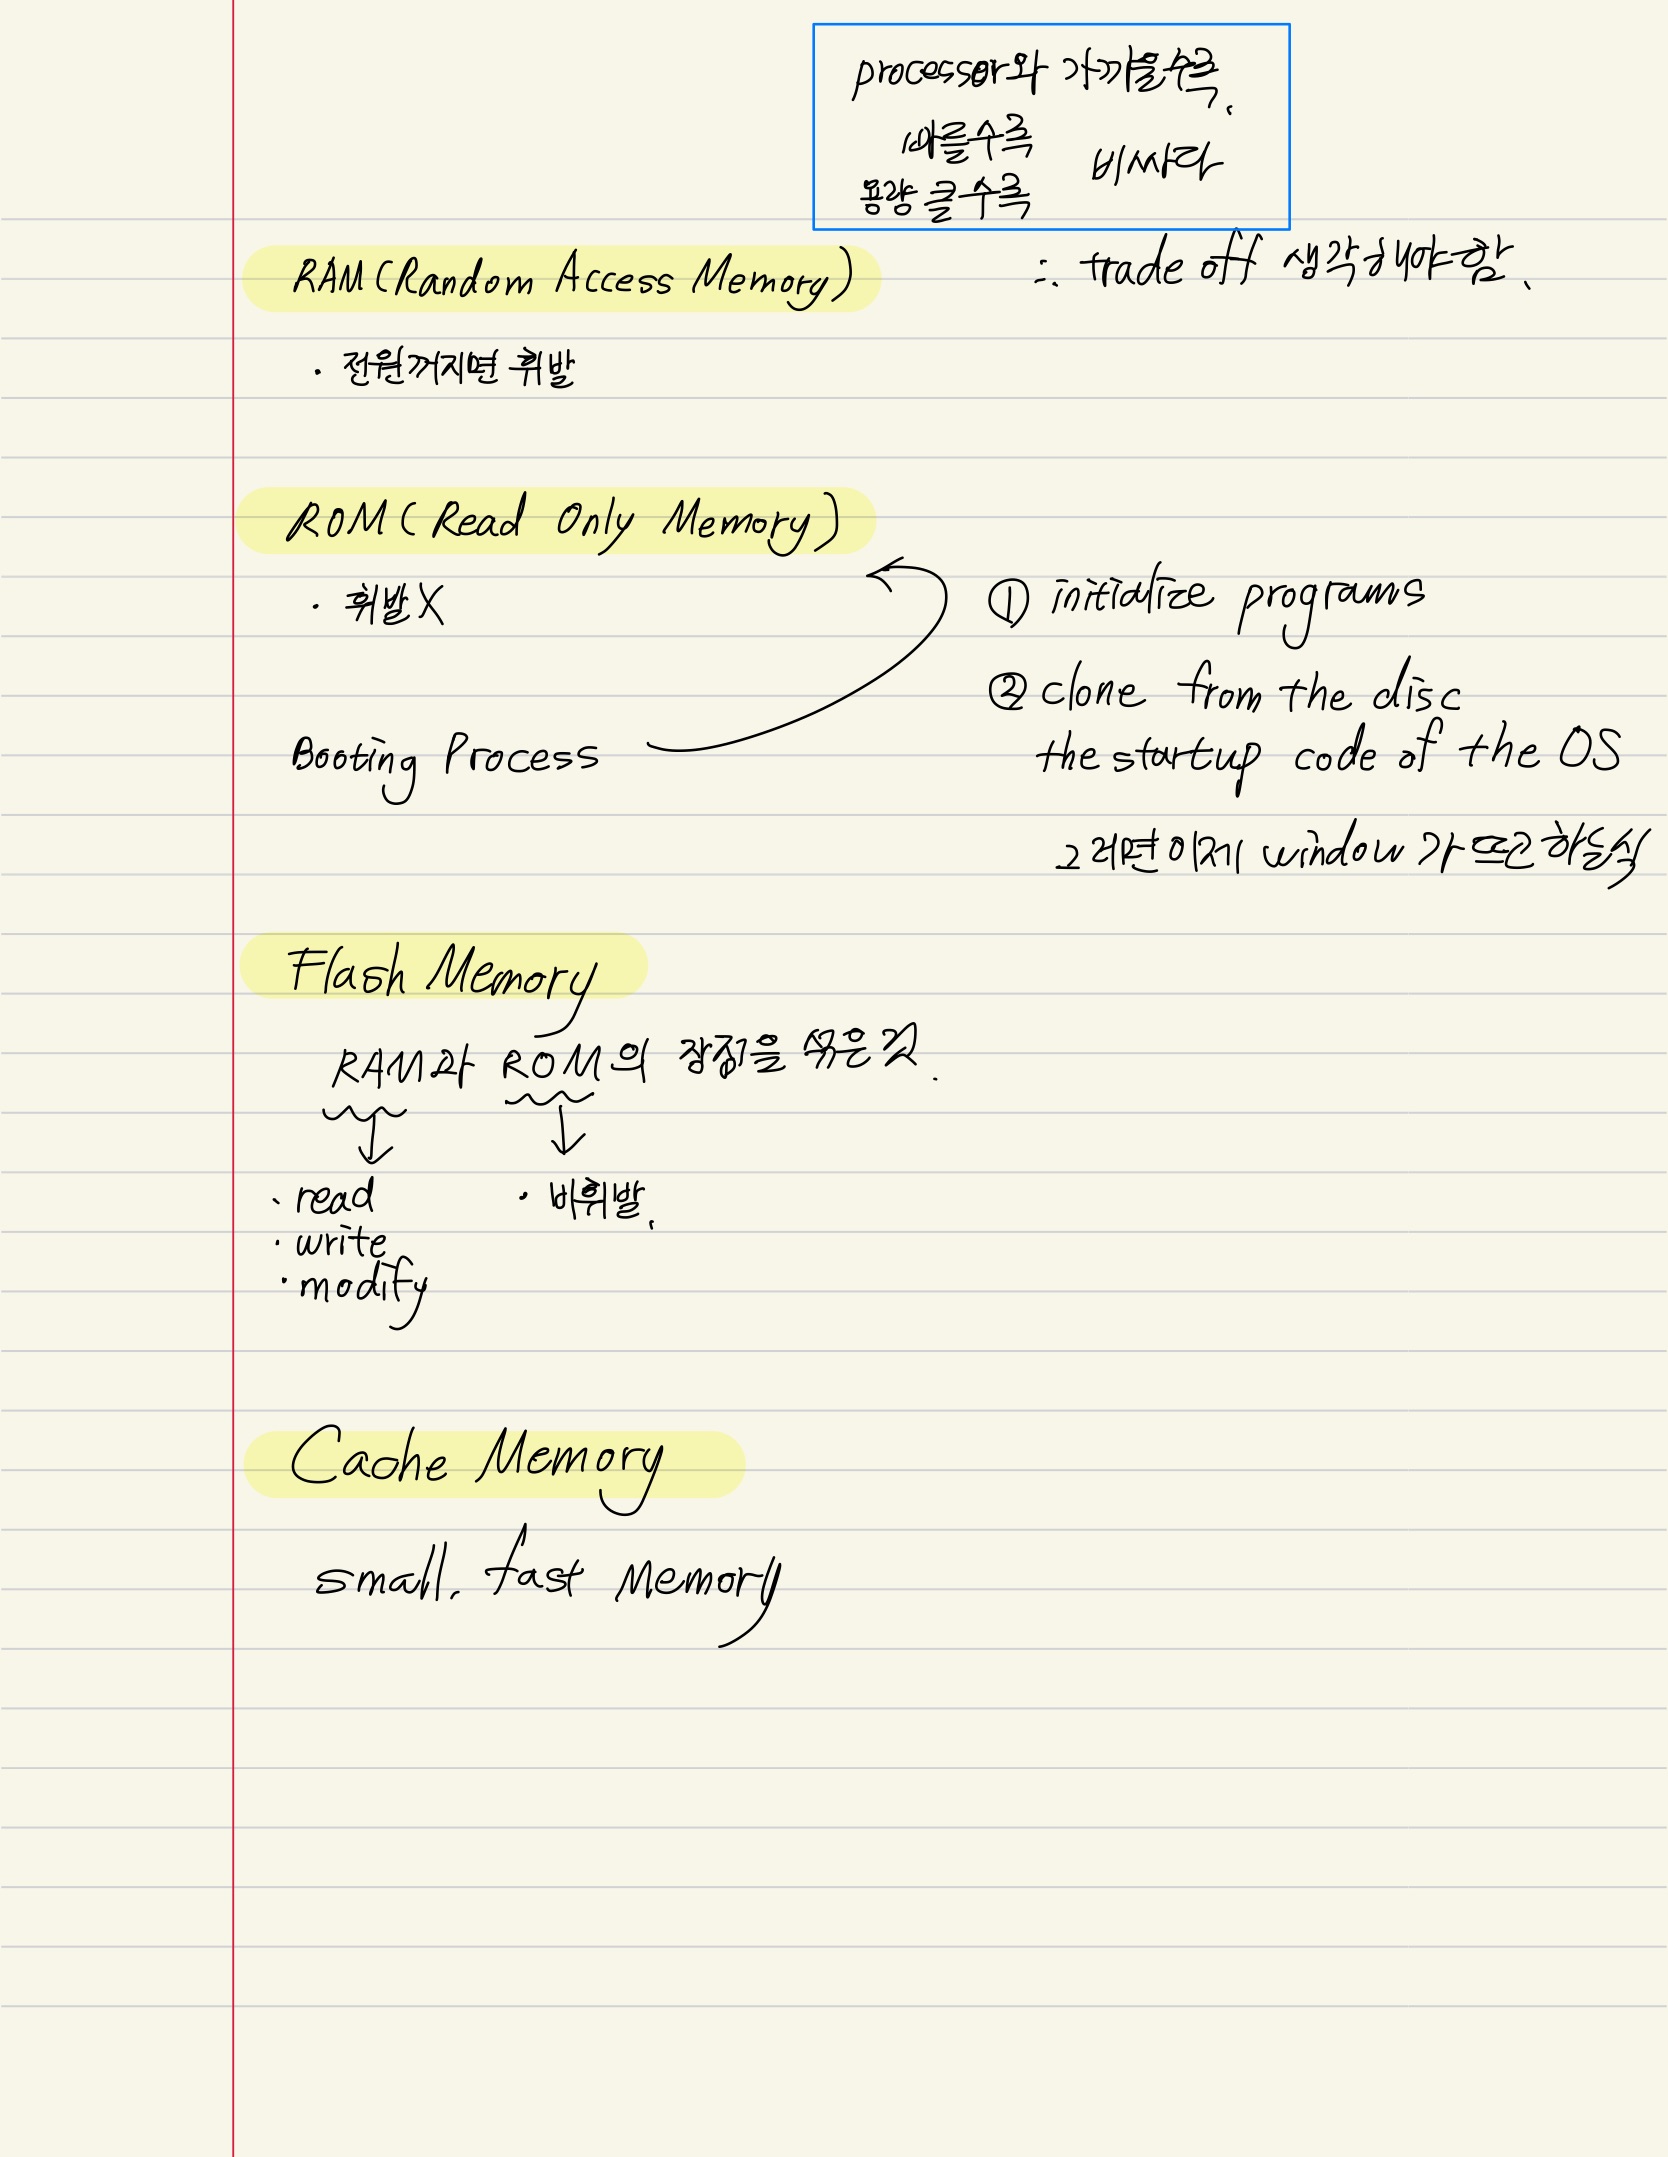 processor와 가까울수록.
빠를수록
비싸다
용량 클수록
∴ trade off 생각해야함.
RAM(Random Access Memory)
· 전원꺼지면 휘발
ROM(Read Only Memory)
· 휘발X
① initialize programs
② clone from the disc
the startup code of the OS
Booting Process
그러면이제 window가 뜨고 하는식
Flash Memory
RAM과 ROM의 장점을 섞은것.
· read
· 비휘발.
· write
· modify
Cache Memory
small. fast Memory